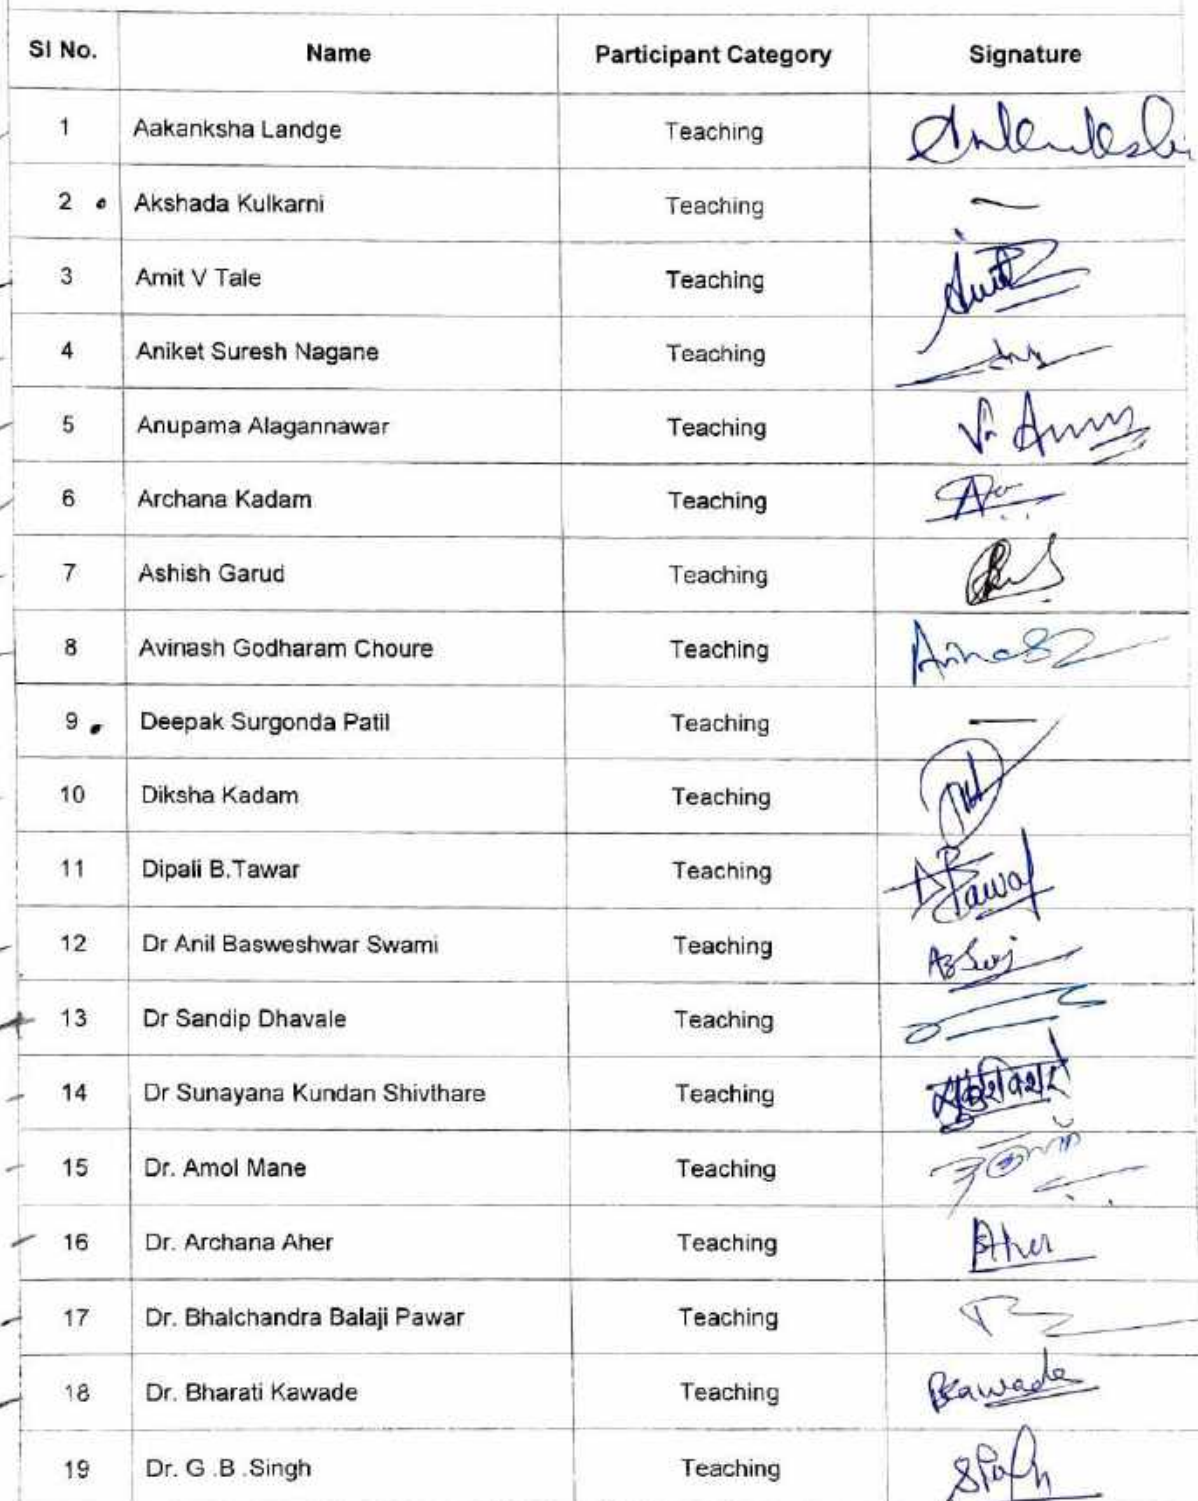 SI No. Name Participant Category Signature
1 Aakanksha Landge Teaching
2 Akshada Kulkarni Teaching —
3 Amit V Tale Teaching
4 Aniket Suresh Nagane Teaching
5 Anupama Alagannawar Teaching
6 Archana Kadam Teaching
7 Ashish Garud Teaching
8 Avinash Godharam Choure Teaching
9 Deepak Surgonda Patil Teaching —
10 Diksha Kadam Teaching
11 Dipali B.Tawar Teaching
12 Dr Anil Basweshwar Swami Teaching
13 Dr Sandip Dhavale Teaching
14 Dr Sunayana Kundan Shivthare Teaching
15 Dr. Amol Mane Teaching
16 Dr. Archana Aher Teaching Aher
17 Dr. Bhalchandra Balaji Pawar Teaching
18 Dr. Bharati Kawade Teaching Bkawade
19 Dr. G .B .Singh Teaching